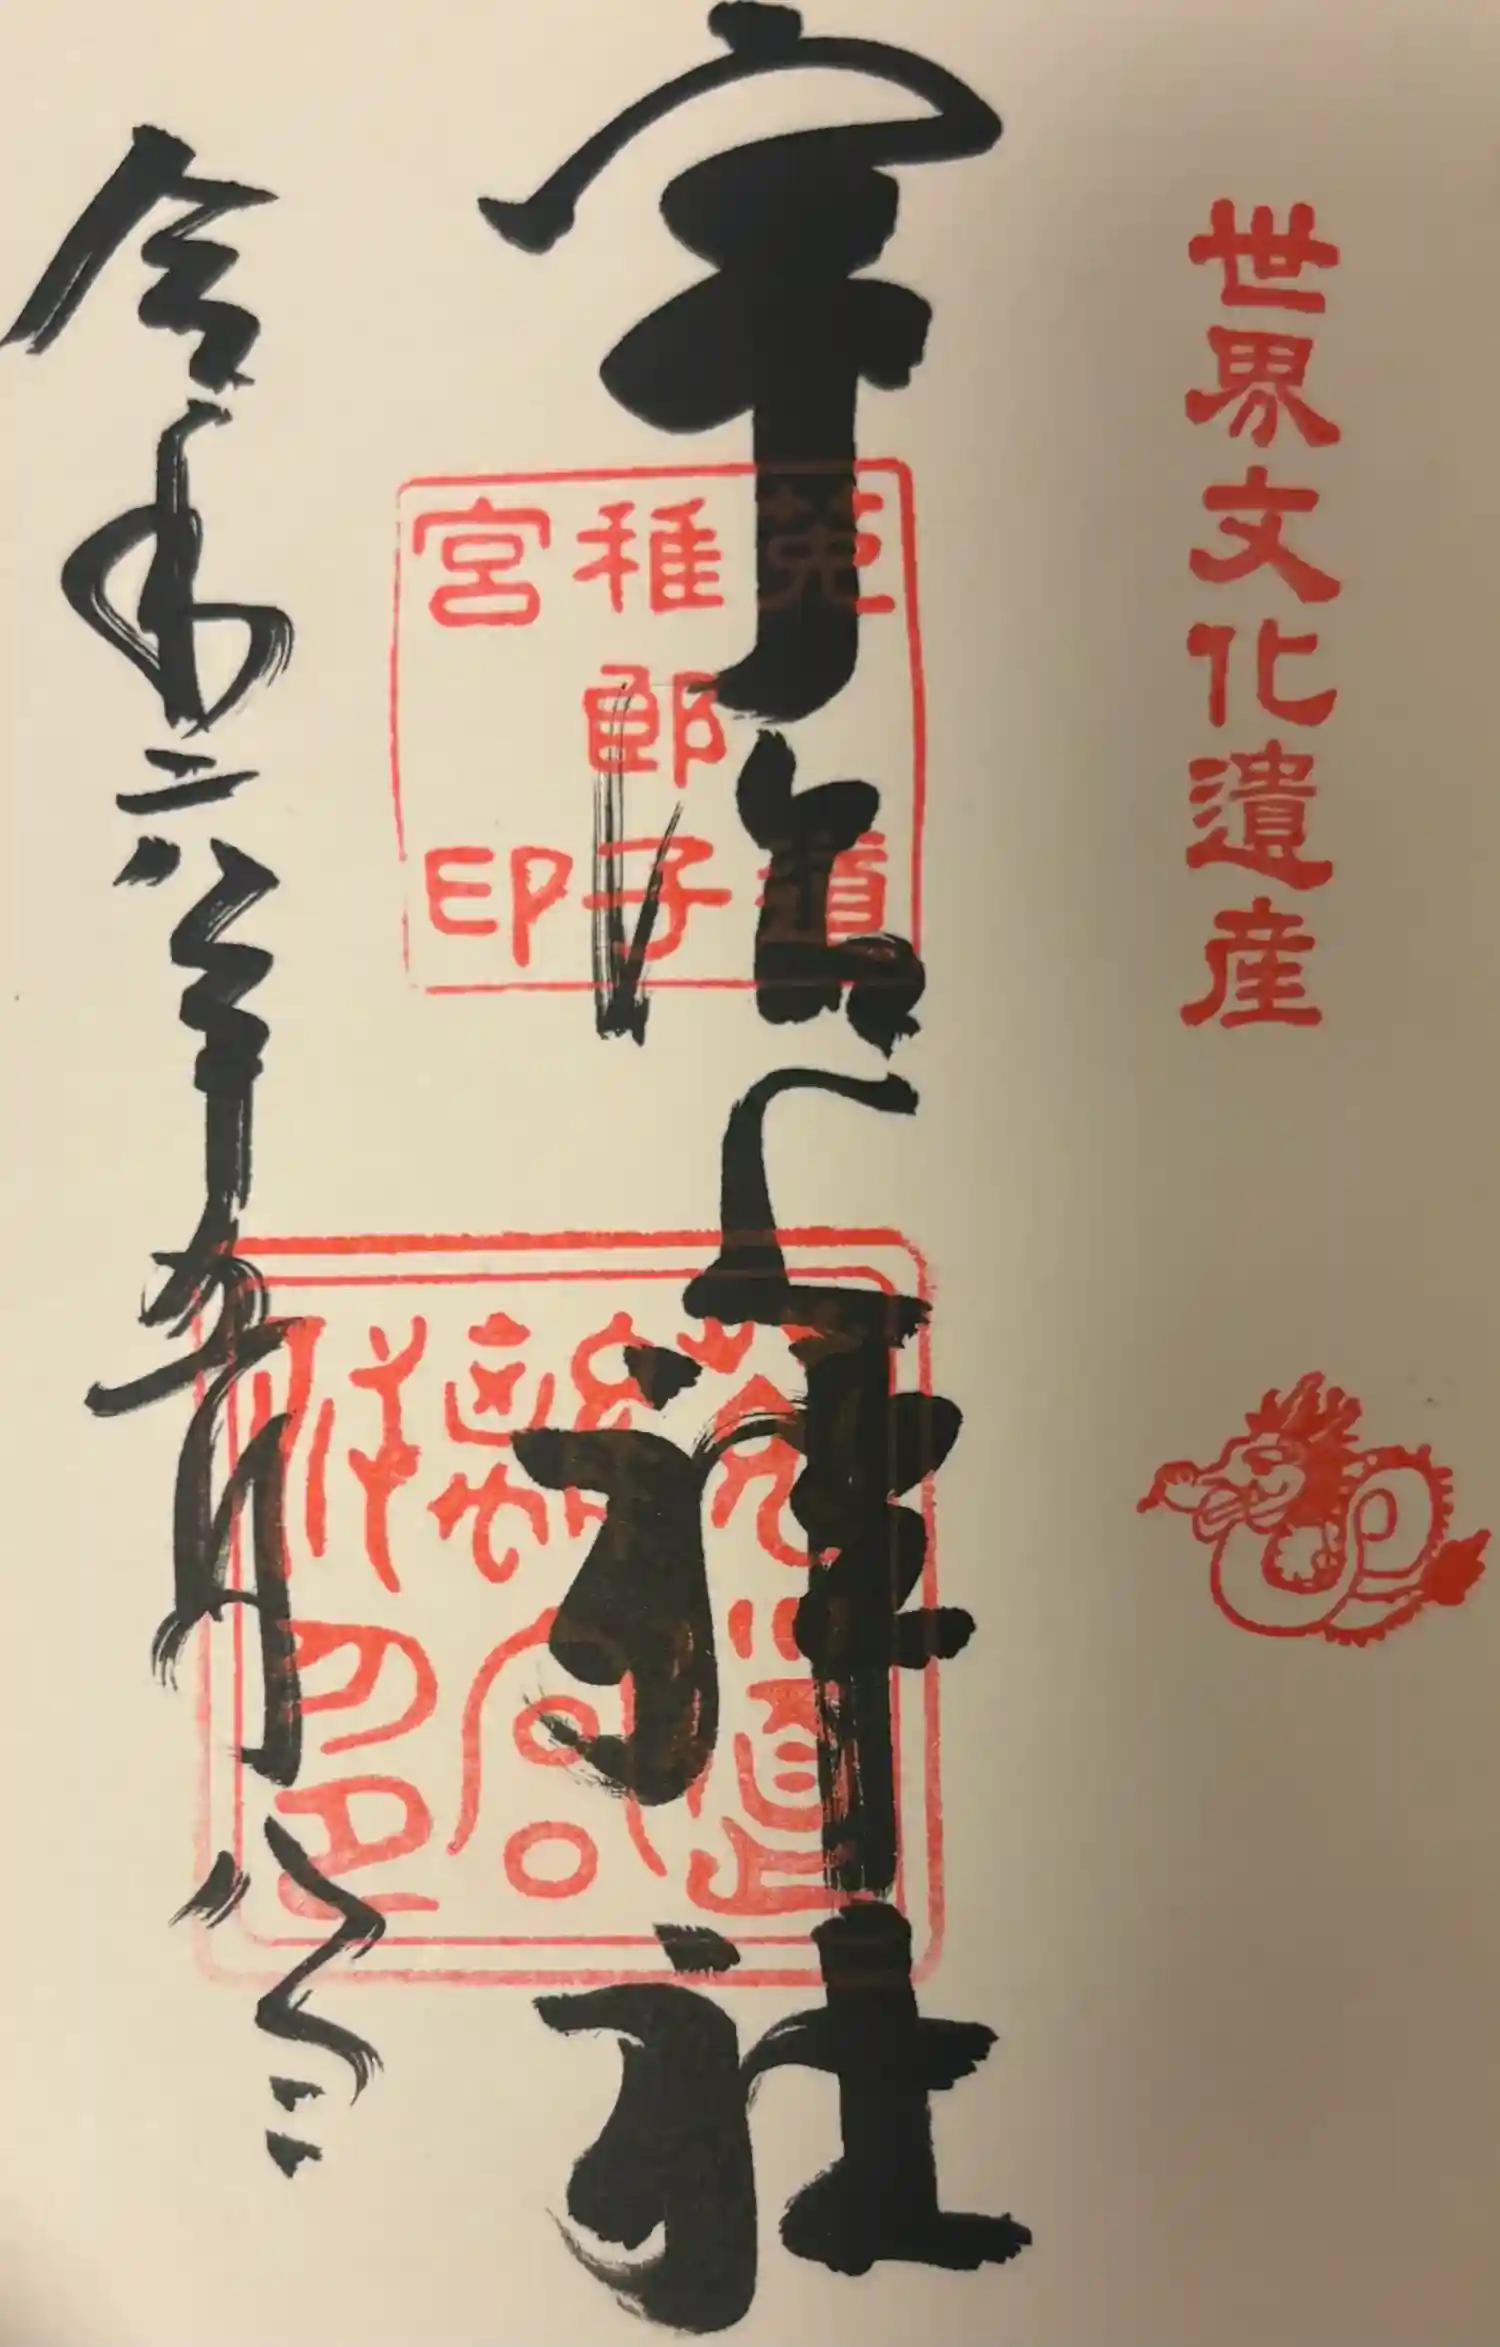 世界文化遺産
宇治上神社
菟道
稚郎子
宮印
令和六年五月